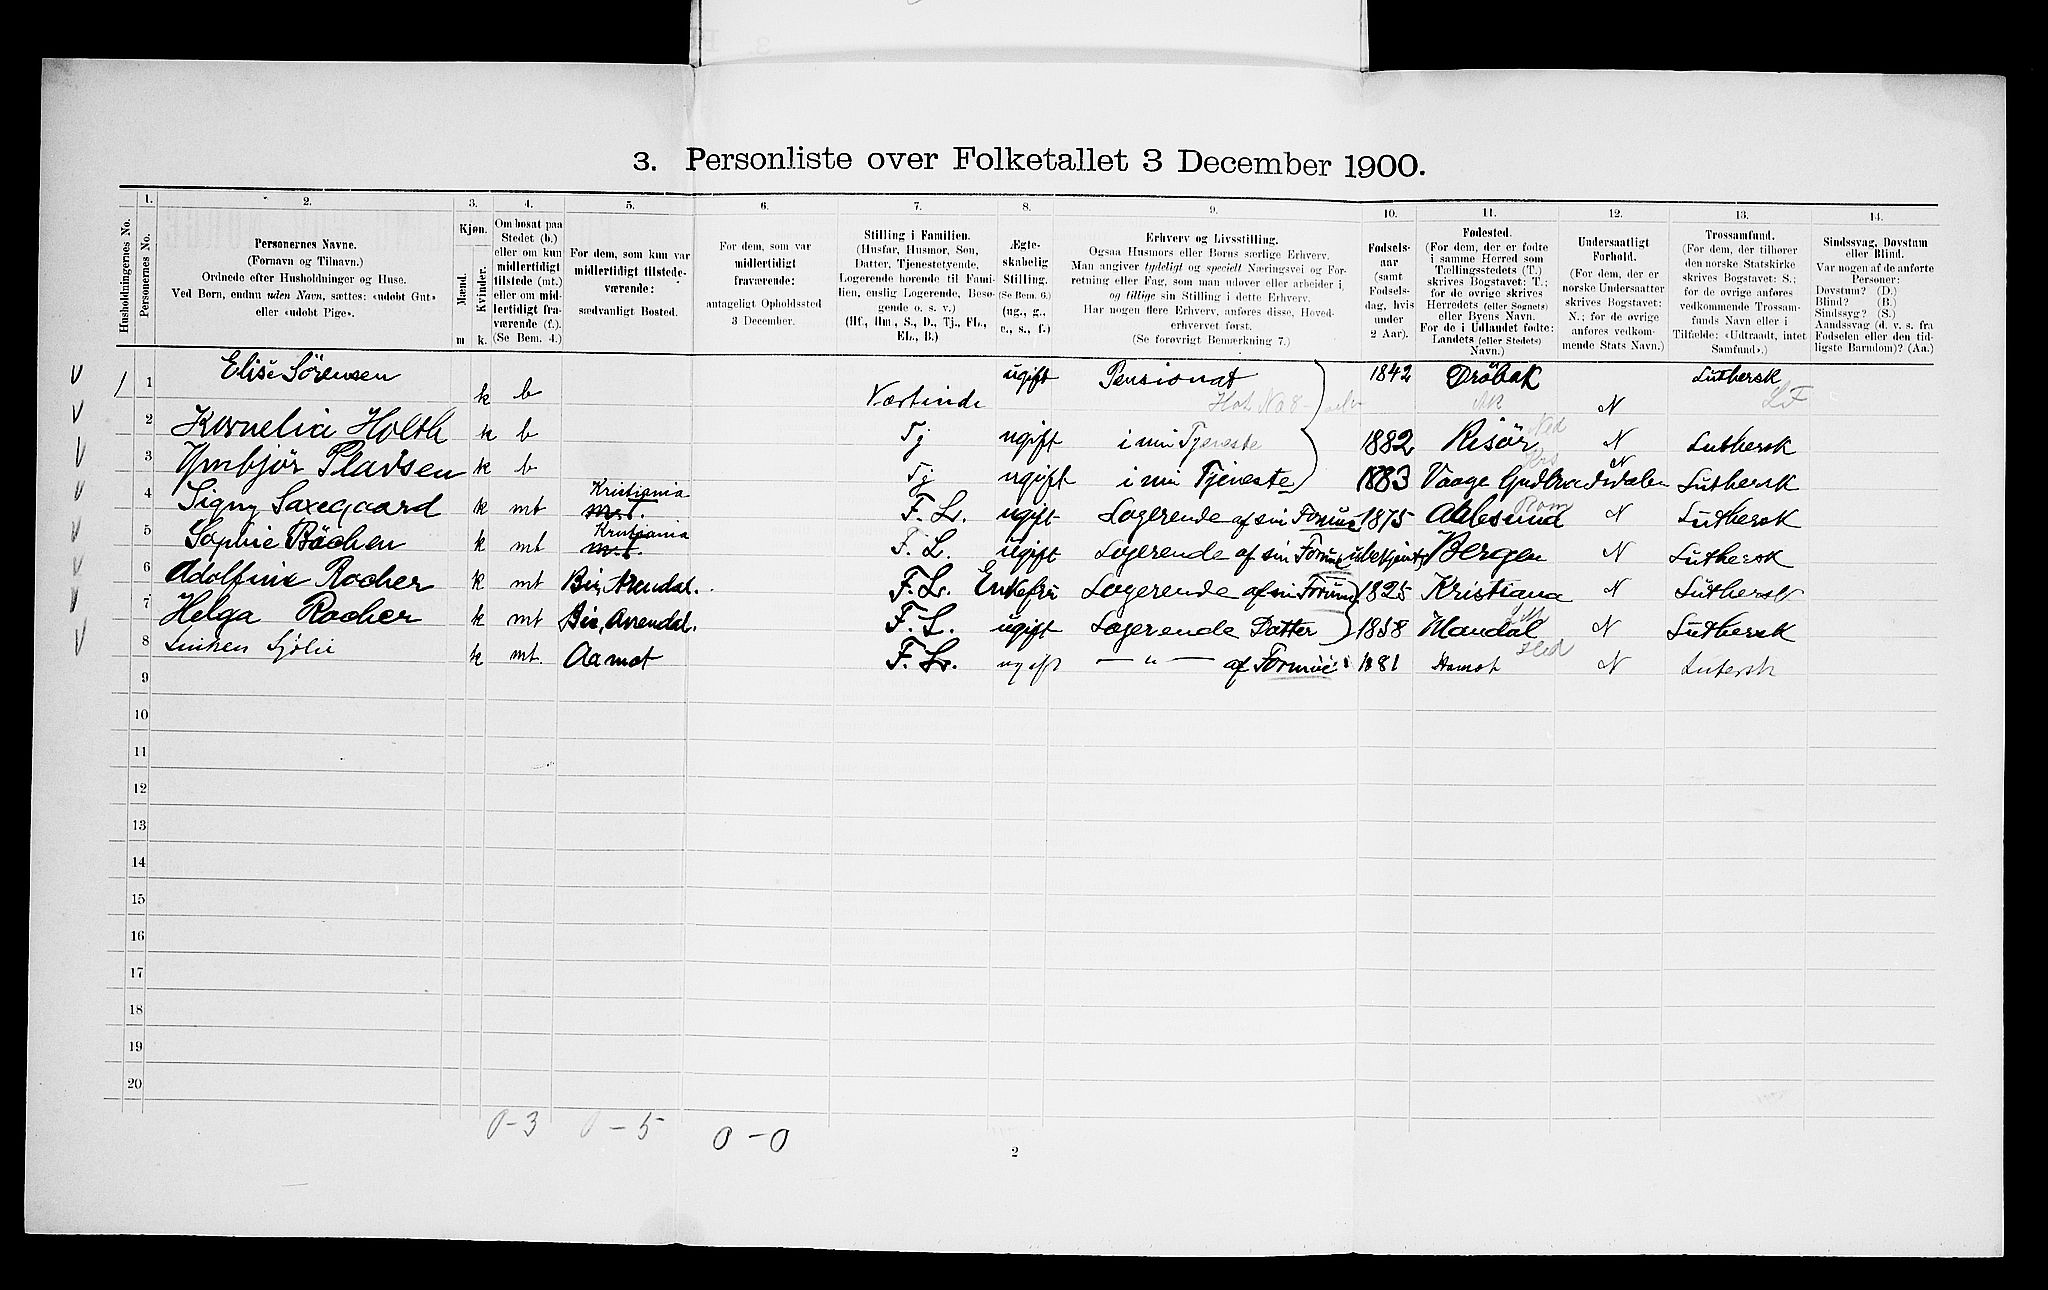 3. Personliste over Folketallet 3 December 1900.
1. 2. 3. 4. 5. 6. 7. 8. 9. 10. 11. 12. 13. 14.
Husholdningernes No.
Personernes No.
Personernes Navne.
(Fornavn og Tilnavn.)
Ordnede efter Husholdninger og Huse.
Ved Børn, endnu uden Navn, sættes: «udøbt Gut»
eller «udøbt Pige».
Kjøn.
Mænd. Kvinder.
m k.
Om bosat paa
Stedet (b.)
eller om kun
midlertidigt
tilstede (mt.)
eller om mid-
lertidigt fra-
værende (f.).
(Se Bem. 4.)
For dem, som kun var
midlertidigt tilstede-
værende:
sædvanligt Bosted.
For dem, som var
midlertidigt
fraværende:
antageligt Opholdssted
3 December.
Stilling i Familien.
(Husfar, Husmor, Søn,
Datter, Tjenestetyende,
Logerende hørende til Fami-
lien, enslig Logerende, Besø-
gende o. s. v.)
(Hf., Hm., S., D., Tj., FL.,
EL., B.)
Ægte-
skabelig
Stilling.
(Se Bem. 6.)
(ug., g.,
e., s., f.)
Erhverv og Livsstilling.
Ogsaa Husmors eller Børns særlige Erhverv.
Man angiver tydeligt og specielt Næringsvei og For-
retning eller Fag, som man udøver eller arbeider i,
og tillige sin Stilling i dette Erhverv.
Har nogen flere Erhverv, anføres disse, Hoved-
erhvervet først.
(Se forøvrigt Bemærkning 7.)
Fødsels-
aar
(samt
Fødsels-
dag, hvis
under
2 Aar).
Fødested.
(For dem, der er fødte
i samme Herred som
Tællingsstedets (T.)
skrives Bogstavet: T.;
for de øvrige skrives
Herredets (eller Sognets)
eller Byens Navn.
For de i Udlandet fødte:
Landets (eller Stedets)
Navn.)
Undersaatligt
Forhold.
(For dem, der er
norske Undersaatter
skrives Bogstavet:
N.; for de øvrige
anføres vedkom-
mende Stats Navn.)
Trossamfund.
(For dem, der tilhører
den norske Statskirke
skrives Bogstavet: S.;
for de øvrige anføres
vedkommende Trossam-
funds Navn eller i
Tilfælde: «Udtraadt, intet
Samfund».)
Sindssvag, Døvstum
eller Blind.
Var nogen af de anførte
Personer:
Døvstum? (D.)
Blind? (B.)
Sindssyg? (S.)
Aandssvag (d. v. s. fra
Fødselen eller den tid-
ligste Barndom)? (Aa.)
1 1 Elise Sörensen k b Værtinde ugift Pensionat 1842 Dröbak N Luthersk
2 Kornelia Holth k b Tj ugift i min Tjeneste 1882 Risör N Luthersk
3 k b Tj ugift i min Tjeneste 1883 Vaage Gudbrandsdalen N Luthersk
4 Signy Saxegaard k mt Kristiania F. L. ugift Logerende af sin Formue 1875 Aalesund N Luthersk
5 Sophie k mt Kristiania F. L. ugift Logerende af sin Formue ubekjent Bergen N Luthersk
6 Adolfine Rocher k mt Bie, Arendal. F. L. Enkefru Logerende af sin Formue 1825 Kristiana N Luthersk
7 Helga Rocher k mt Bie, Arendal. F. L. ugift Logerende Datter 1858 Mandal N Luthersk
8 Sjølie k mt. Aamot F. L. ugift — " — af Formue 1881 Aamot N Lutersk
9
10
11
12
13
14
15
16
17
18
19
20
0-3 0-5 0-0
2